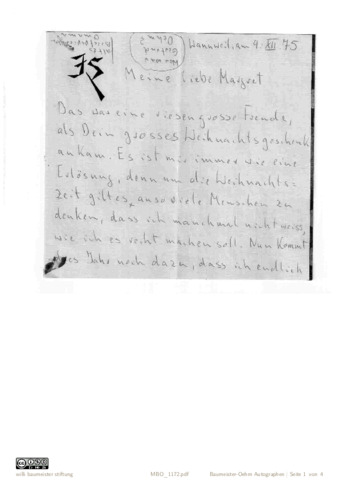 Wannweil am 9. XII 75
Meine liebe Margret
Das war eine riesengrosse Freude,
als Dein grosses Weihnachtsgeschenk
ankam. Es ist mir immer wie eine
Erlösung, denn um die Weihnachts=
zeit gilt es, an so viele Menschen zu
denken, dass ich manchmal nicht weiss,
wie ich es recht machen soll. Nun kommt
Jahr noch dazu, dass ich endlich
willi baumeister stiftung
MBO_1172.pdf
Baumeister-Oehm Autographen : Seite 1 von 4